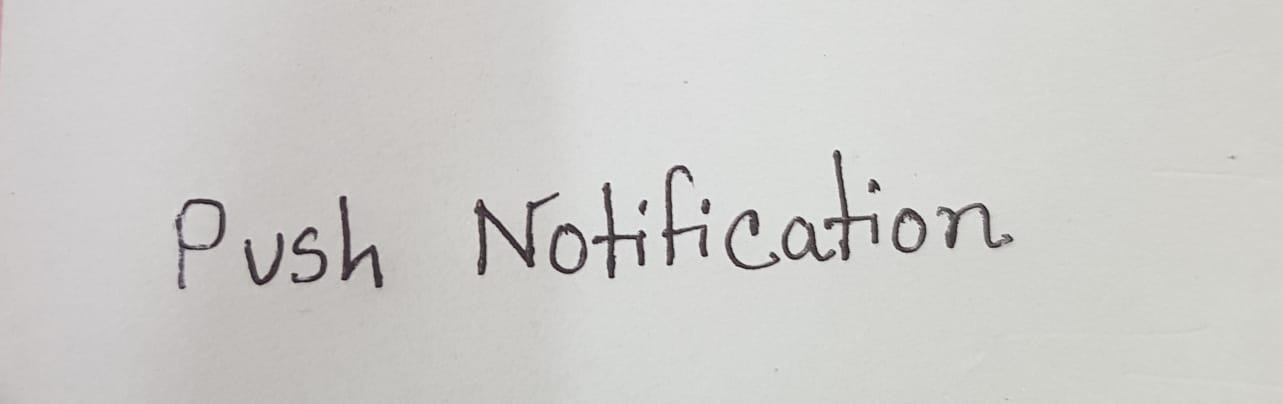 Push Notification